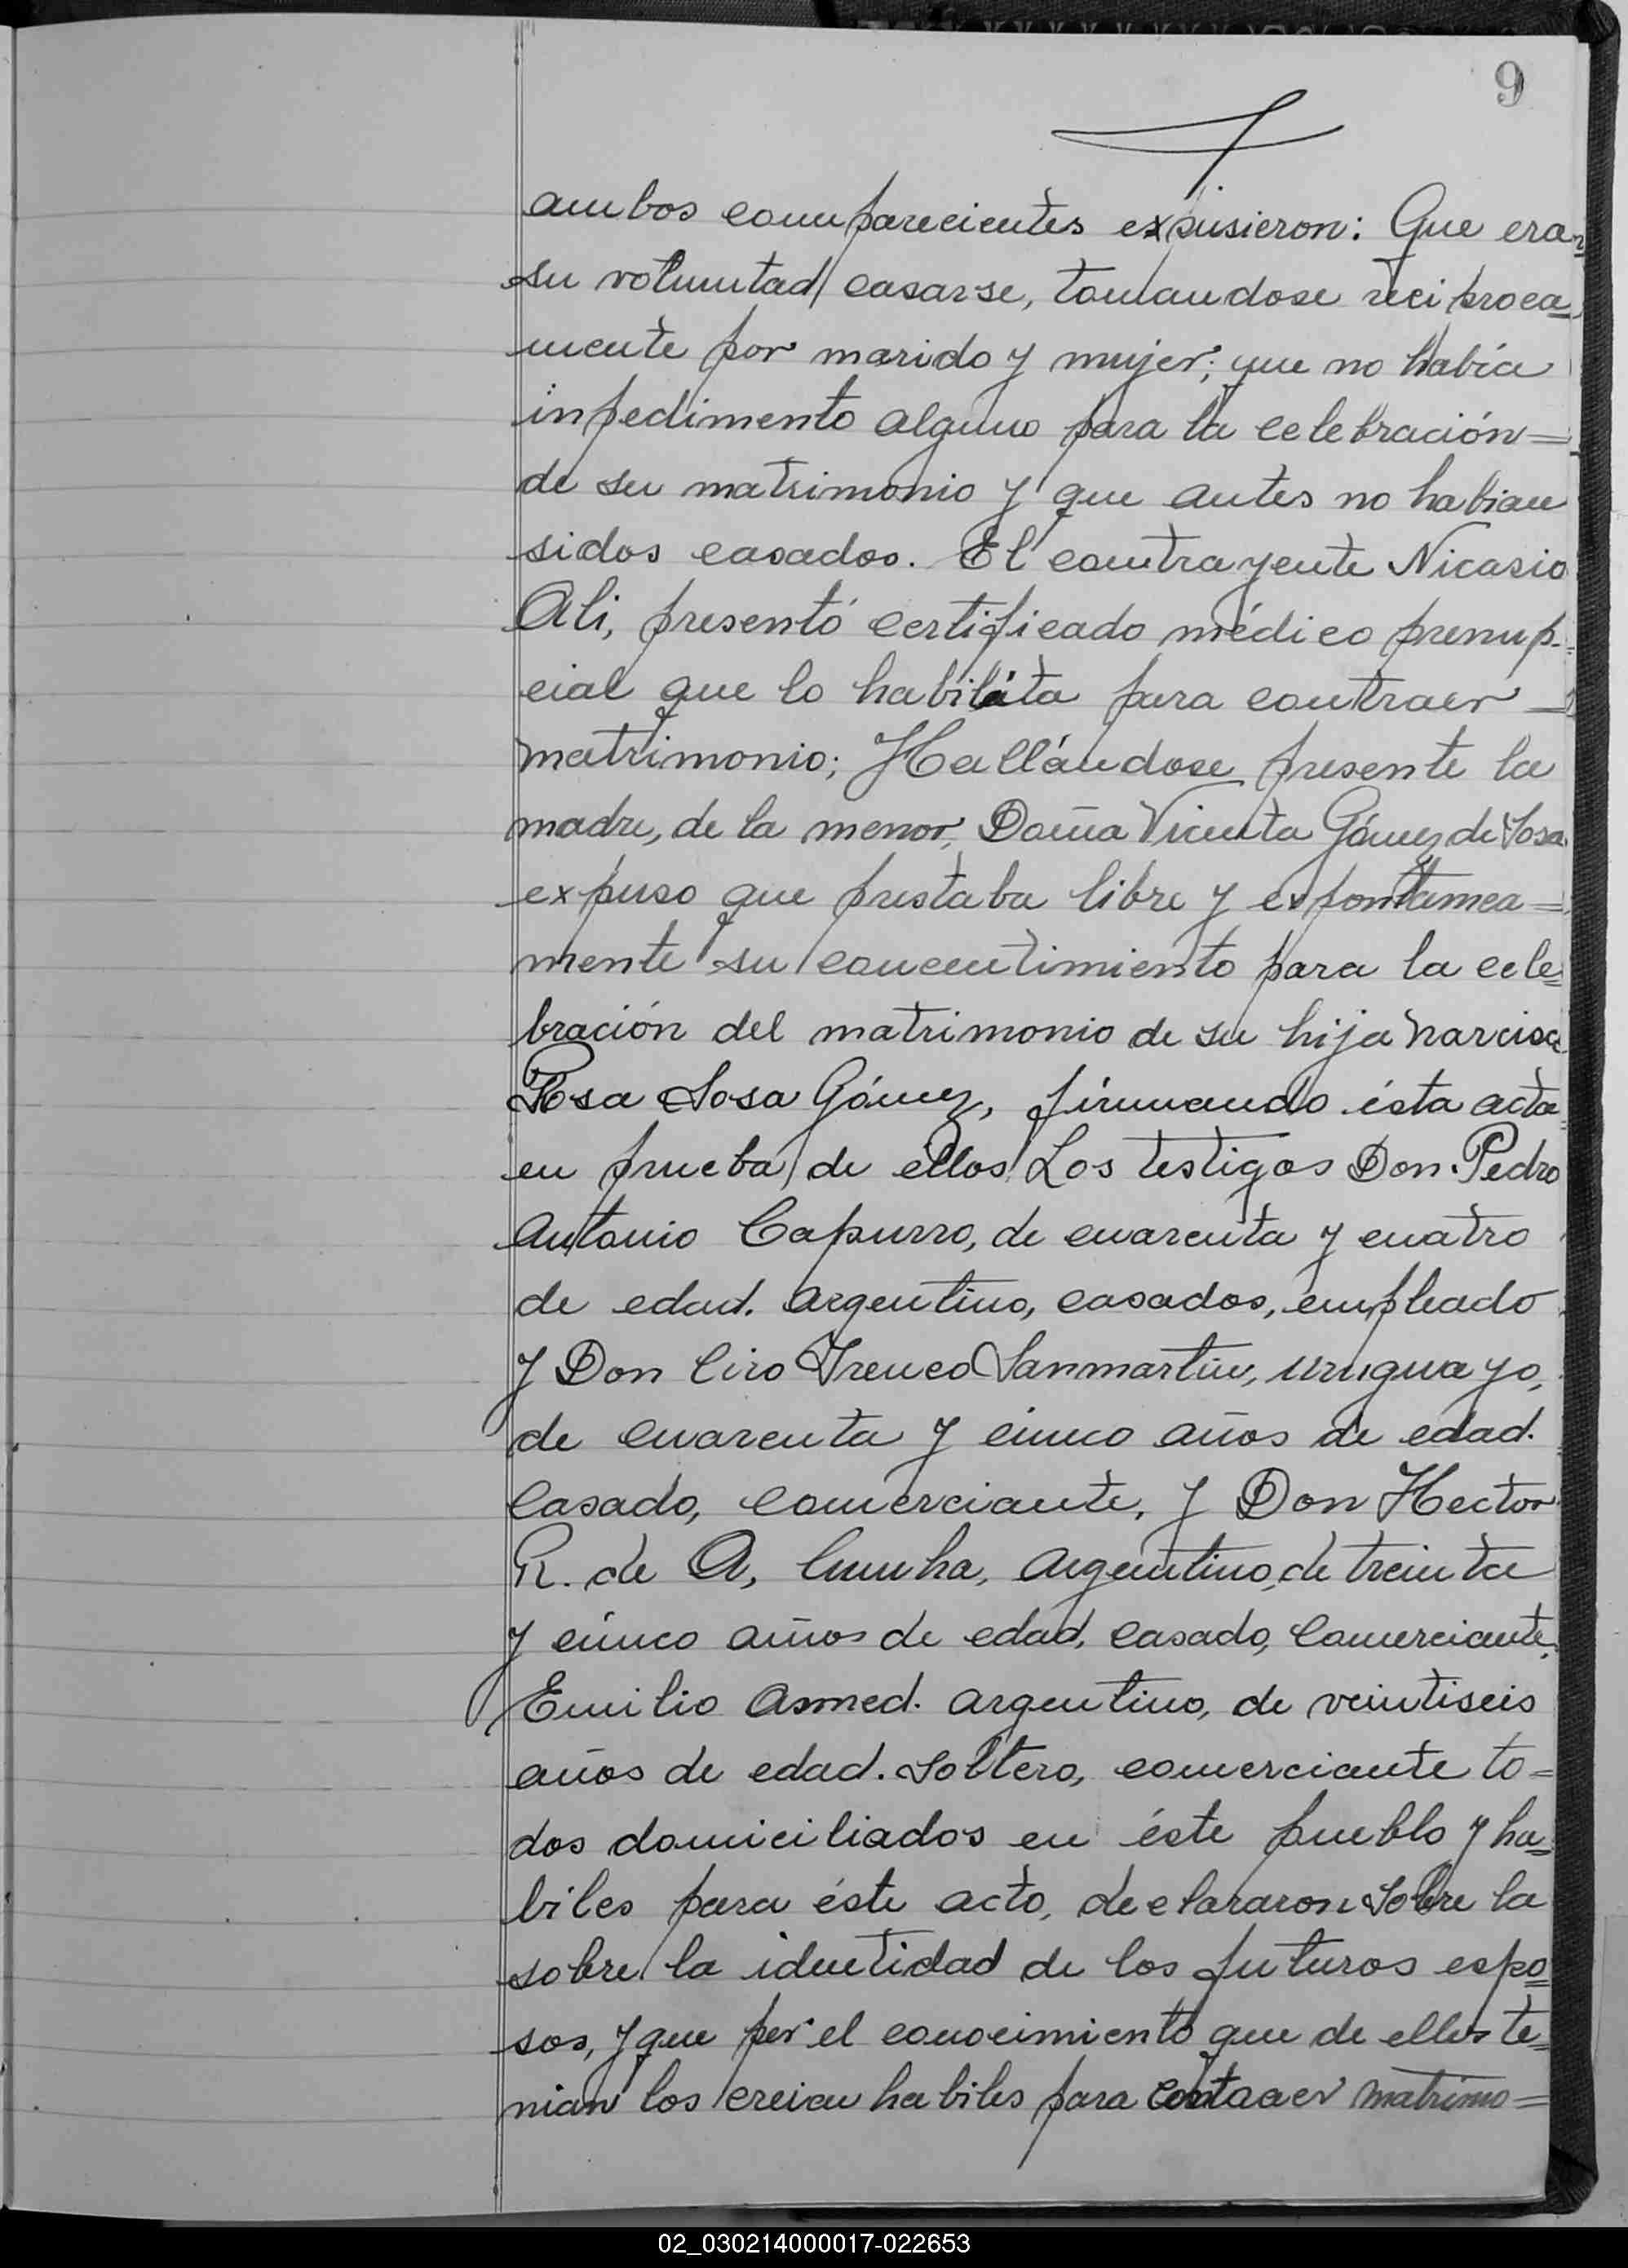 9
ambos comparecientes expusieron: Que eran
su voluntad casarse, tomandose reciproca
mente por marido y mujer; que no había
inpedimento alguno para la celebración=
de su matrimonio y que antes no habian
sidos casados. El contrayente Nicasio
Ali, presentó certificado médico prenup=
cial que lo habilita para contraer =
matrimonio; Hallándose presente la
madre, de la menor, Doña Vicenta Gómez de Sosa
expuso que prestaba libre y espontanea=
mente su concentimiento para la cele=
bración del matrimonio de su hija Narcisa
Rosa Sosa Gómez, firmando ésta acta
en prueba de ellos. Los testigos Don. Pedro
Antonio Capurro, de cuarenta y cuatro
de edad. Argentino, casados, empleado
y Don Ciro Ireneo Sanmartin, uruguayo,
de cuarenta y cinco años de edad.
Casado, comerciante, y Don Hector
R. de A, Cunha, Argentino, de treinta
y cinco años de edad, casado, Comerciante,
Emilio Asmed. argentino, de veintiseis
años de edad. soltero, comerciante to=
dos domiciliados en éste pueblo y ha=
biles para éste acto, declararon sobre la
sobre la identidad de los futuros espo=
sos, y que por el conocimiento que de ellos te=
nian los creian habiles para contraer matrimo=
02_030214000017-022653